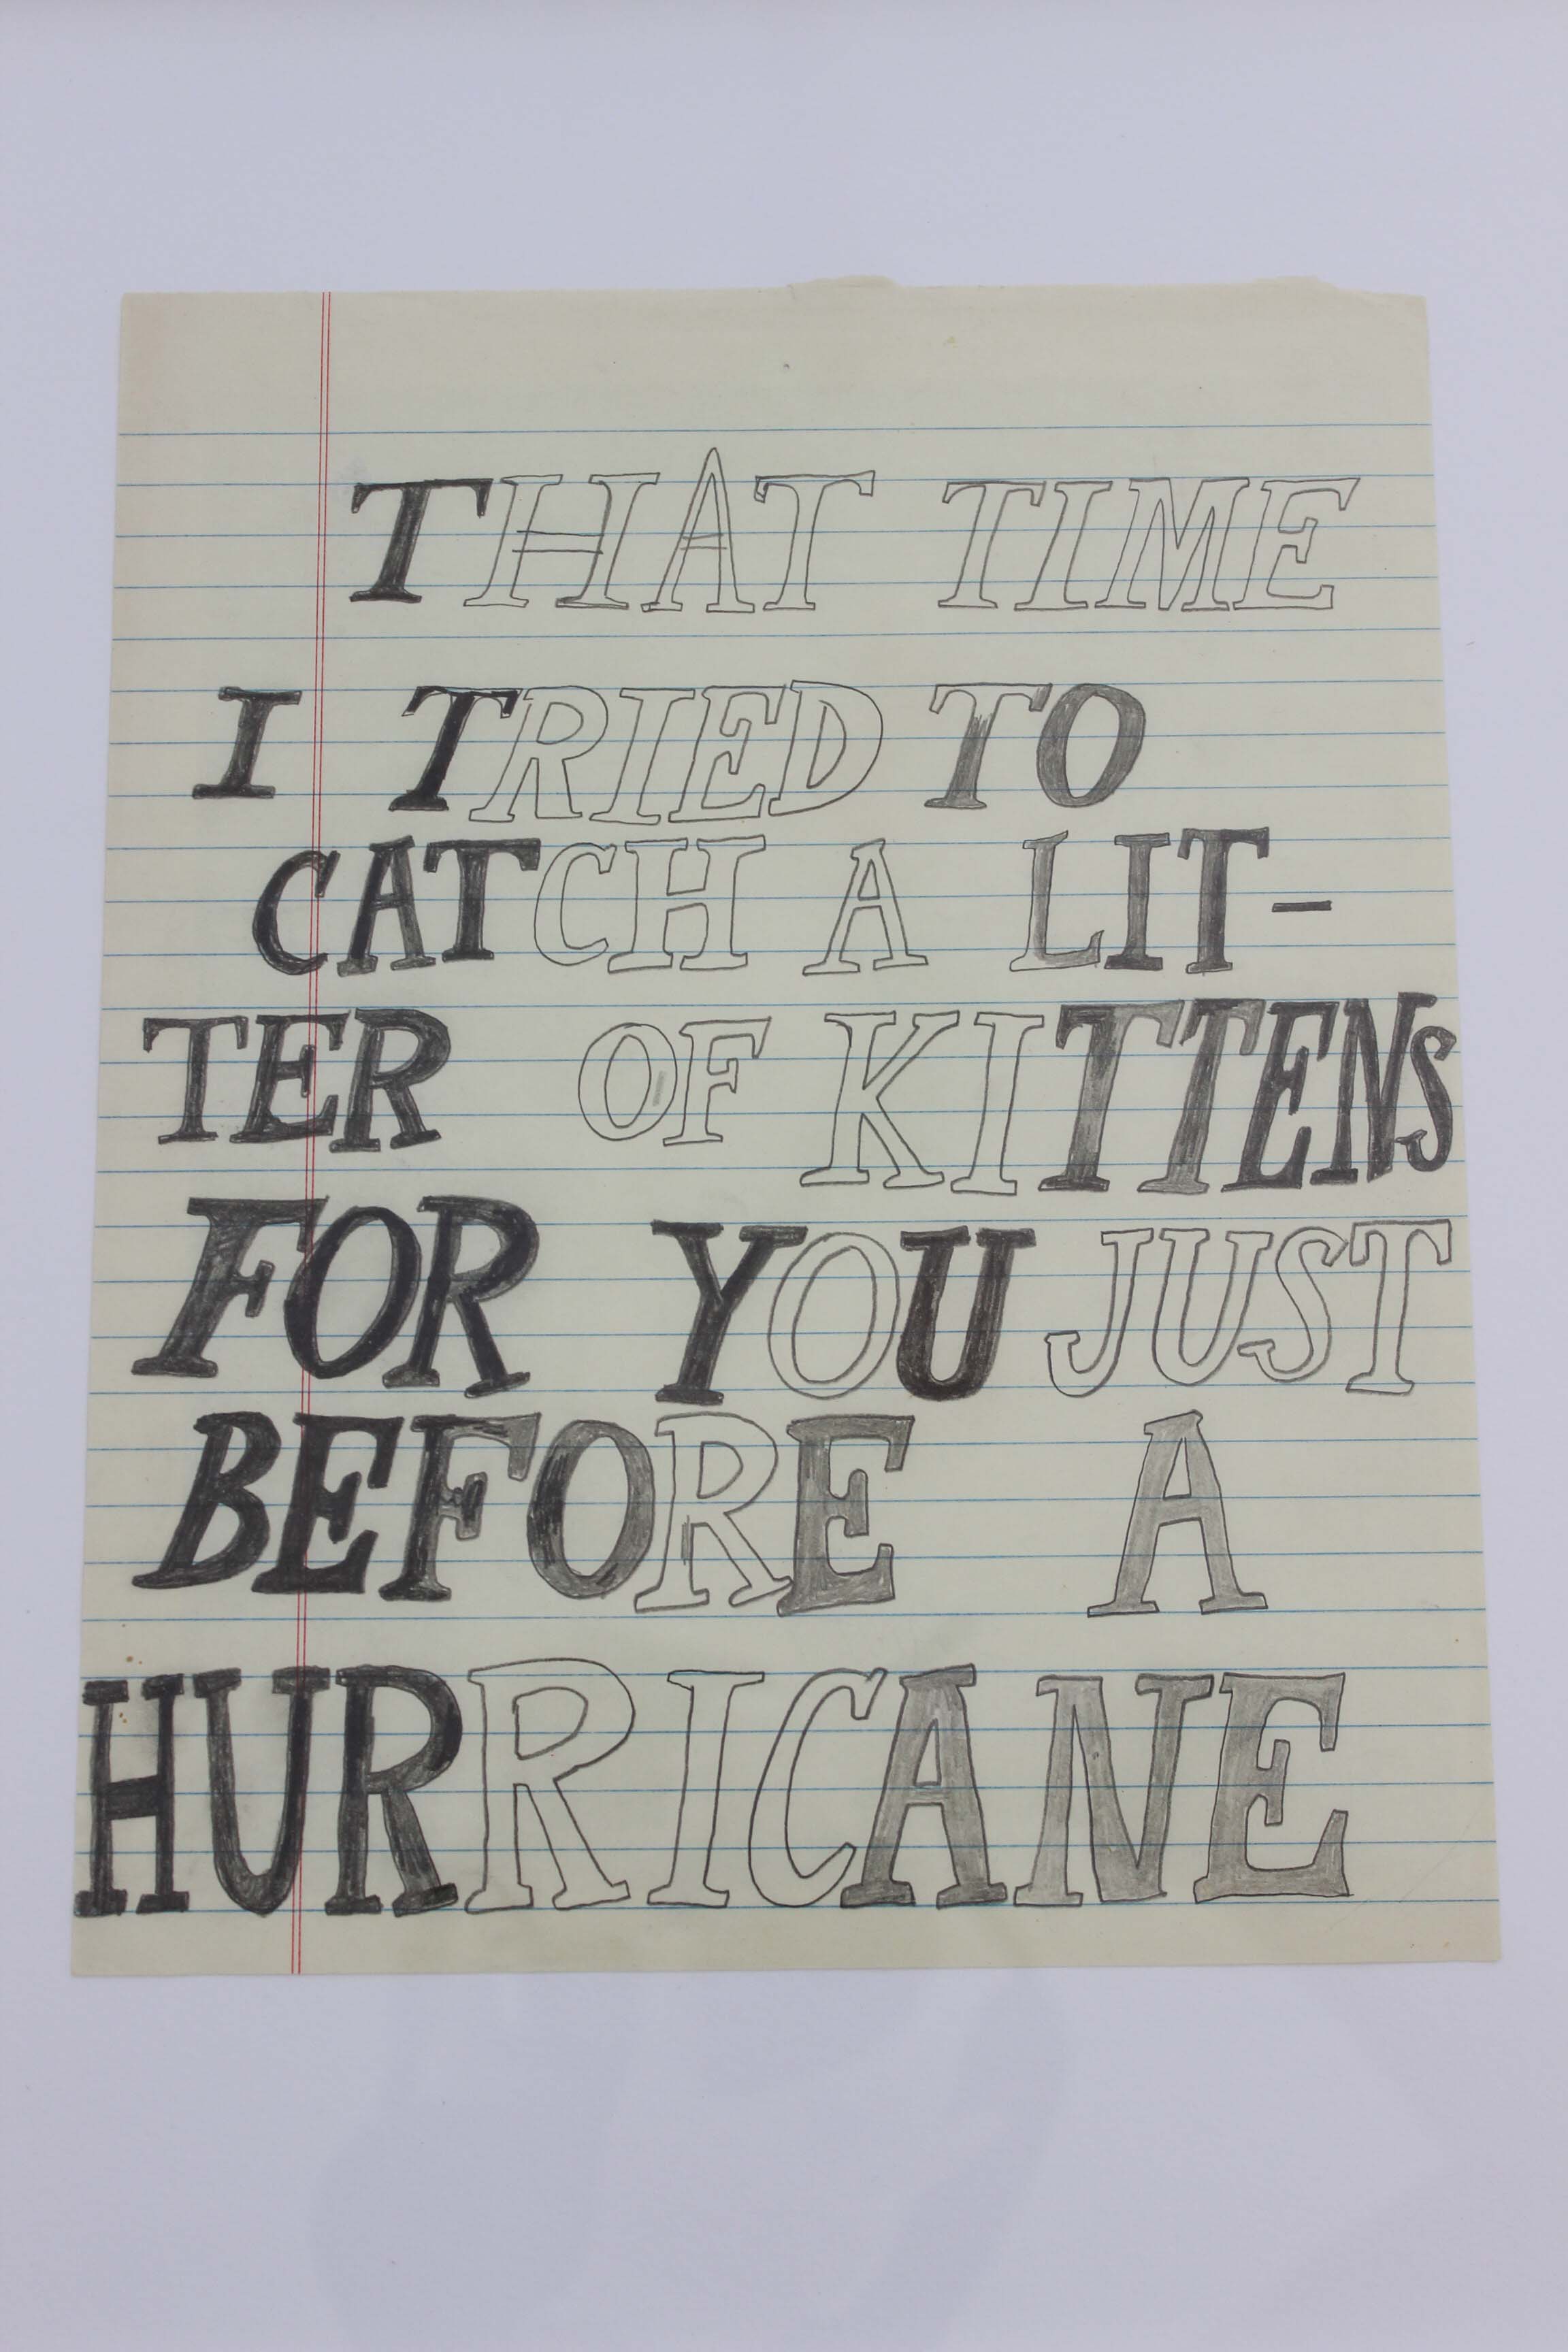 THAT TIME
I TRIED TO
CATCH A LIT-
TER OF KITTENS
FOR YOU JUST
BEFORE A
HURRICANE